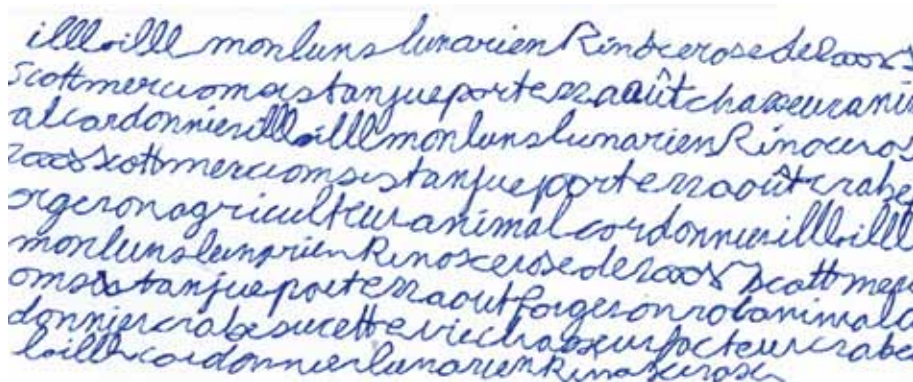 illloilll monlunslunarienRinocerosedeSzoos
Scottmerciomsistanjueporterraaoûtchasseurani
alcordonnierillloilllmonlunslunarienRinoceros
zoosscottmerciomsistanjueporterraoûtcrabe
orgeronagriculteuranimalcordonnierillloilll
monlunslunarienRinoscerosedeszoosScottmer
omsistanjueporterraaoutforgeronrobanimalco
donniercrabesucetteviechasseurfacteurcrabe
loilllcordonnierlunarienRinosceroses